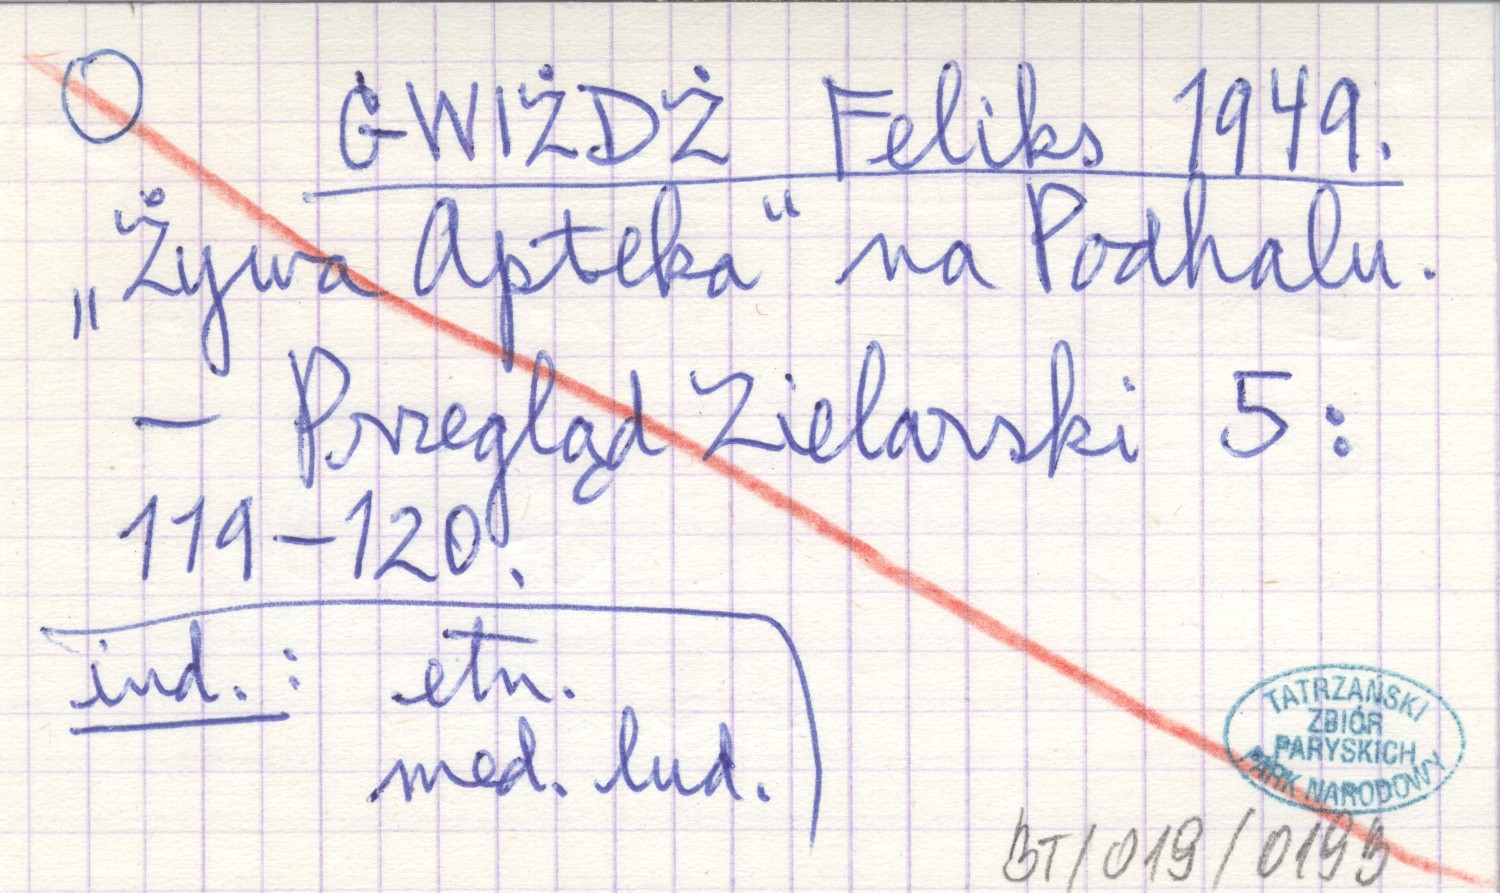 GWIŻDŻ Feliks 1949.
„Żywa Apteka“ na Podhalu.
– Przegląd Zielarski 5:
119–120.
ind.: etn.
med. lud.
TATRZAŃSKI
ZBIÓR
PARYSKICH
PARK NARODOWY
BT/019/0193